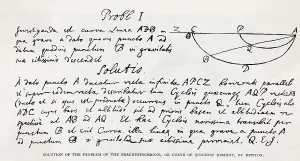 Probl I
Investiganda est curva Linea ADB in
qua grave a dato quovis puncto A ad
datum quodvis punctum B vi gravitatis
suæ citissime descendet
Solutio.
A dato puncto A ducatur recta infinita APCZ horizonti parallela
et super eadem recta describatur tum Cyclois quæcunque AQP rectæ AB
(ductæ et si opus est productæ) occurrens in puncto Q, tum Cyclois alia
ADC cujus basis et altitudo sit ad prioris basem et altitudinem respective
ut AB ad AQ. Et hæc Cyclois novissima transibit per
punctum B et erit Curva illa linea in qua grave a puncto A
ad punctum B vi gravitatis suæ citissime perveniet. Q.E.I.
Z
C
P
A
Q
B
D
SOLUTION OF THE PROBLEM OF THE BRACHISTOCHRONE, OR CURVE OF QUICKEST DESCENT, BY NEWTON.